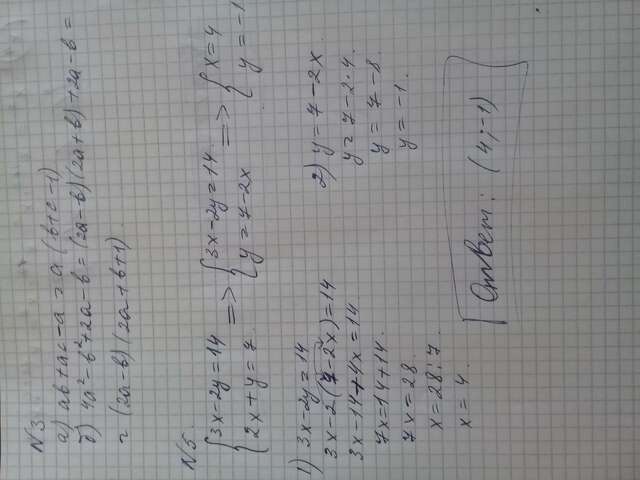 N3
а) ab+ac-a=a(b+c-1)
б) 4a²-b²+2a-b=(2a-b)(2a+b)+2a-b=
=(2a-b)(2a+b+1)
N5
{3x-2y=14 => {3x-2y=14 => {x=4
{2x+y=7 {y=7-2x {y=-1
1) 3x-2y=14
3x-2(7-2x)=14
3x-14+4x=14
7x=14+14
7x=28
x=28:7
x=4
2) y=7-2x
y=7-2·4
y=7-8
y=-1
Ответ: (4;-1)